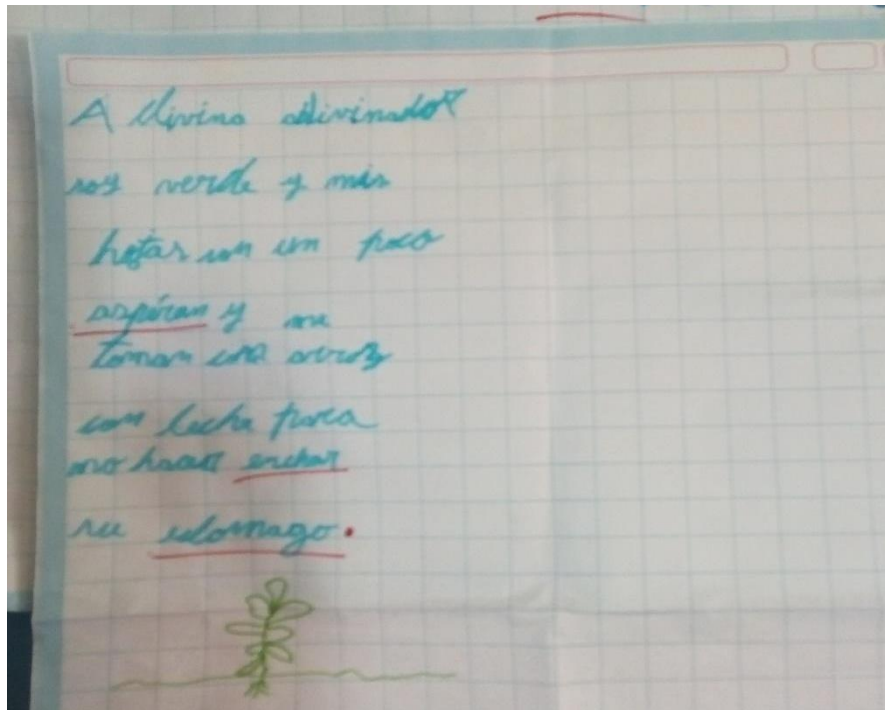 A divino adivinador
soy verde y mis
hojas son un poco
aspiran y me
toman con arroz
con leche para
no hacer enchar
su estomago.